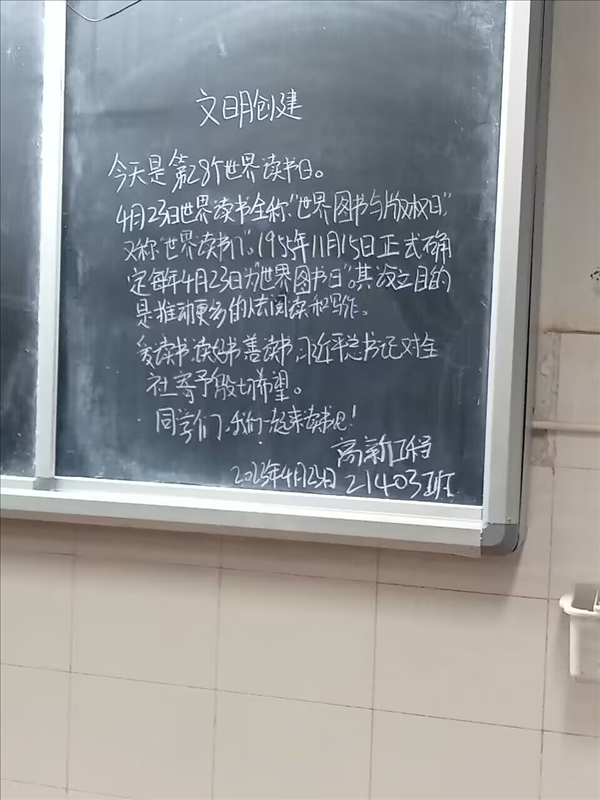 文明创建
今天是第28个世界读书日。
4月23日世界读书全称:"世界图书与版权日",
又称"世界读书日"。1955年11月15日正式确
定每年4月23日为"世界图书日"。其设立目的
是推动更多的人去阅读和写作。
爱读书,读好书,善读书,习近平总书记对全
社寄予殷切希望。
同学们,我们一起来读书吧!
高新工程
2023年4月23日 21403班